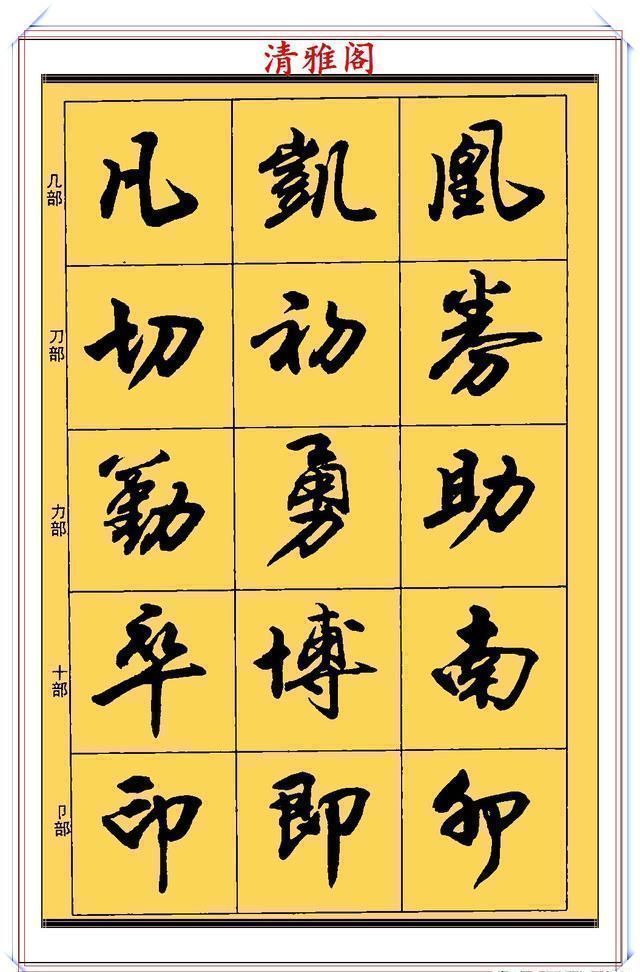 清雅阁
几部 凡 凱 凰
刀部 切 初 券
力部 勤 勇 助
十部 卒 博 南
卩部 印 即 卯